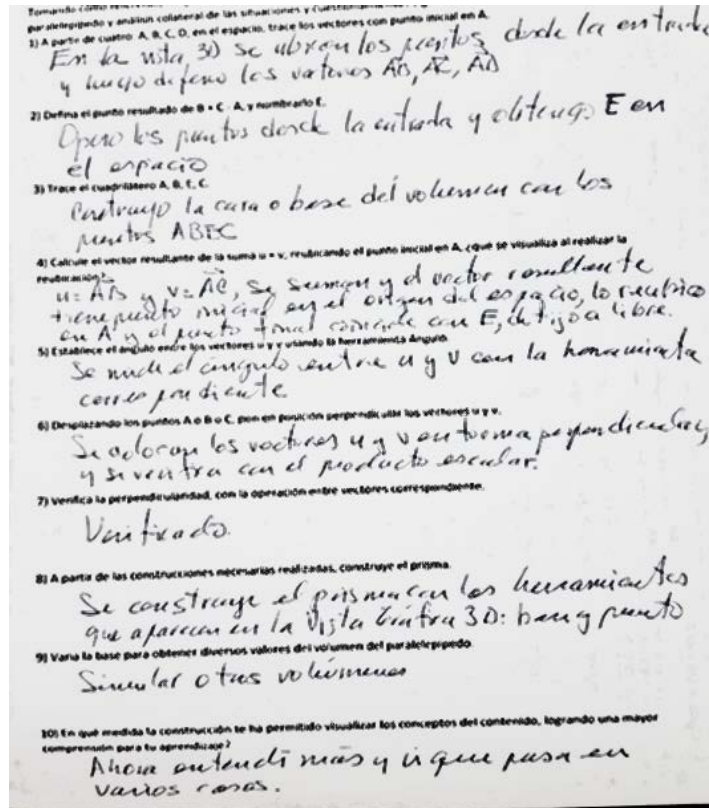 Tomando como
paralelepípedo y análisis colateral de las situaciones y
1) A partir de cuatro: A, B, C, D, en el espacio, trace los vectores con punto inicial en A.
En la vista 3D se ubican los puntos desde la entrada
y luego defino los vectores AB, AC, AD
2) Defina el punto resultado de B + C - A, y nombrarlo E.
Opero los puntos desde la entrada y obtengo E en
el espacio
3) Trace el cuadrilátero A, B, E, C
Construyo la cara o base del volumen con los
puntos ABEC
4) Calcule el vector resultante de la suma u + v, reubicando el punto inicial en A, ¿qué se visualiza al realizar la
reubicación?
u = AB y v = AC, se suman y el vector resultante
tiene punto inicial en el origen del espacio, lo reubico
en A y el punto final coincide con E, de fijo a libre.
5) Establece el ángulo entre los vectores u y v usando la herramienta Ángulo.
Se mide el ángulo entre u y v con la herramienta
correspondiente
6) Desplazando los puntos A o B o C, pon en posición perpendicular los vectores u y v.
Se colocan los vectores u y v en forma perpendicular,
y se verifica con el producto escalar.
7) Verifica la perpendicularidad, con la operación entre vectores correspondiente.
Verificado.
8) A partir de las construcciones necesarias realizadas, construye el prisma.
Se construye el prisma con las herramientas
que aparecen en la Vista Gráfica 3D: base y punto
9) Varía la base para obtener diversos valores del volumen del paralelepípedo
Simular otros volúmenes
10) En qué medida la construcción te ha permitido visualizar los conceptos del contenido, logrando una mayor
comprensión para tu aprendizaje?
Ahora entendí más y vi que pasa en
varios casos.